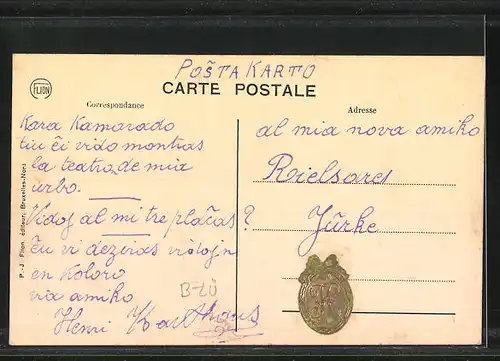 POŜTA KARTO
CARTE POSTALE
FLION
Correspondance
Adresse
Kara Kamarado
tiu ĉi vido montras
la teatro de mia
urbo.
Vidoj al mi tre plaĉas
ĉu vi deziras vidojn
en koloro
via amiko
Henri
al mia nova amiko
?
Jürke
B-Zü
P.-J. Flion, éditeur, Bruxelles-Nord